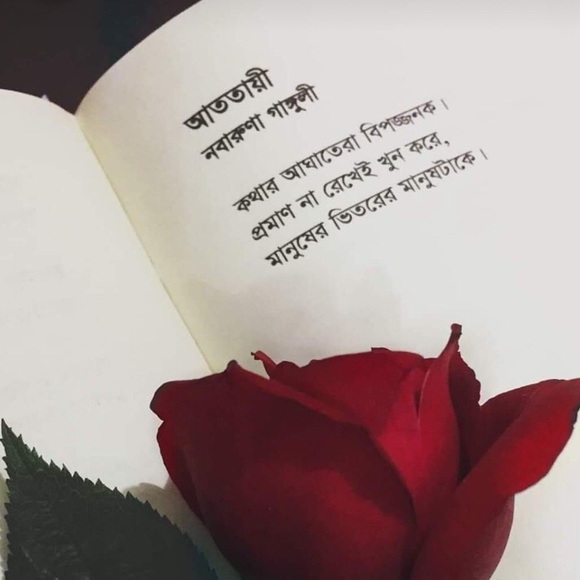 আততায়ী
নবারুণা গাঙ্গুলী
কথার আঘাতেরা বিপজ্জনক।
প্রমাণ না রেখেই খুন করে,
মানুষের ভিতরের মানুষটাকে।